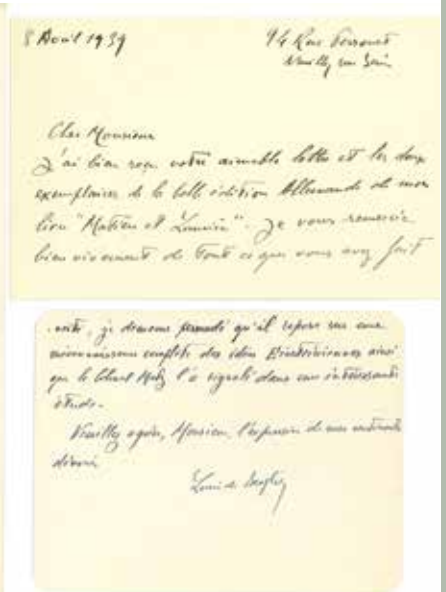 8 Avril 1939
94 Rue Perronet
Neuilly sur Seine
Cher Monsieur
J'ai bien reçu votre aimable lettre et les deux
exemplaires de la belle édition Allemande de mon
livre "Matière et Lumière". Je vous remercie
bien vivement de tout ce que vous avez fait
je demeure persuadé qu'il repose sur une
méconnaissance complète des idées Einsteiniennes ainsi
que le Colonel Metz l'a signalé dans une intéressante
étude.
Veuillez agréer, Monsieur, l'expression de mes sentiments
Louis de Broglie